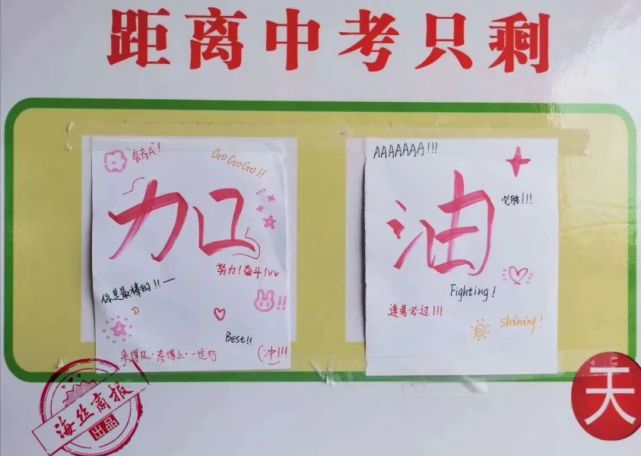 距离中考只剩
全考A!
GoGoGo!!
加
努力!奋斗!
你是最棒的!!!
Best!!
来得及·考得上·一定行
(冲!!!
AAAAAAA!!!
必胜!!!
油
Fighting!
逢考必过!!!
shining!
天
海丝商报
出品